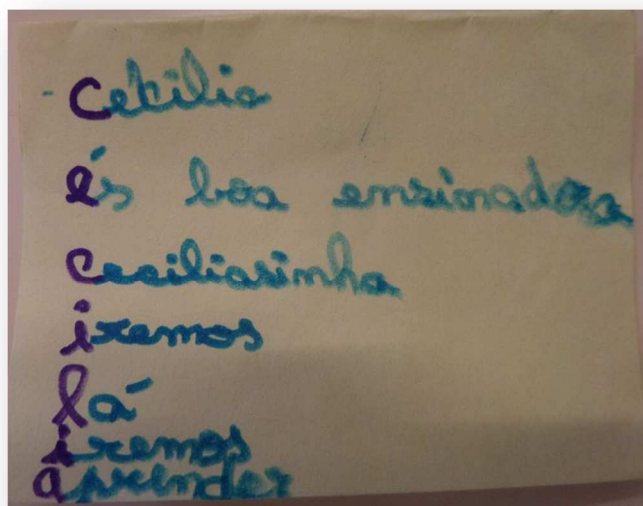 - Cecilia
és boa ensinadora
Ceciliasinha
iremos
lá
iremos
aprender